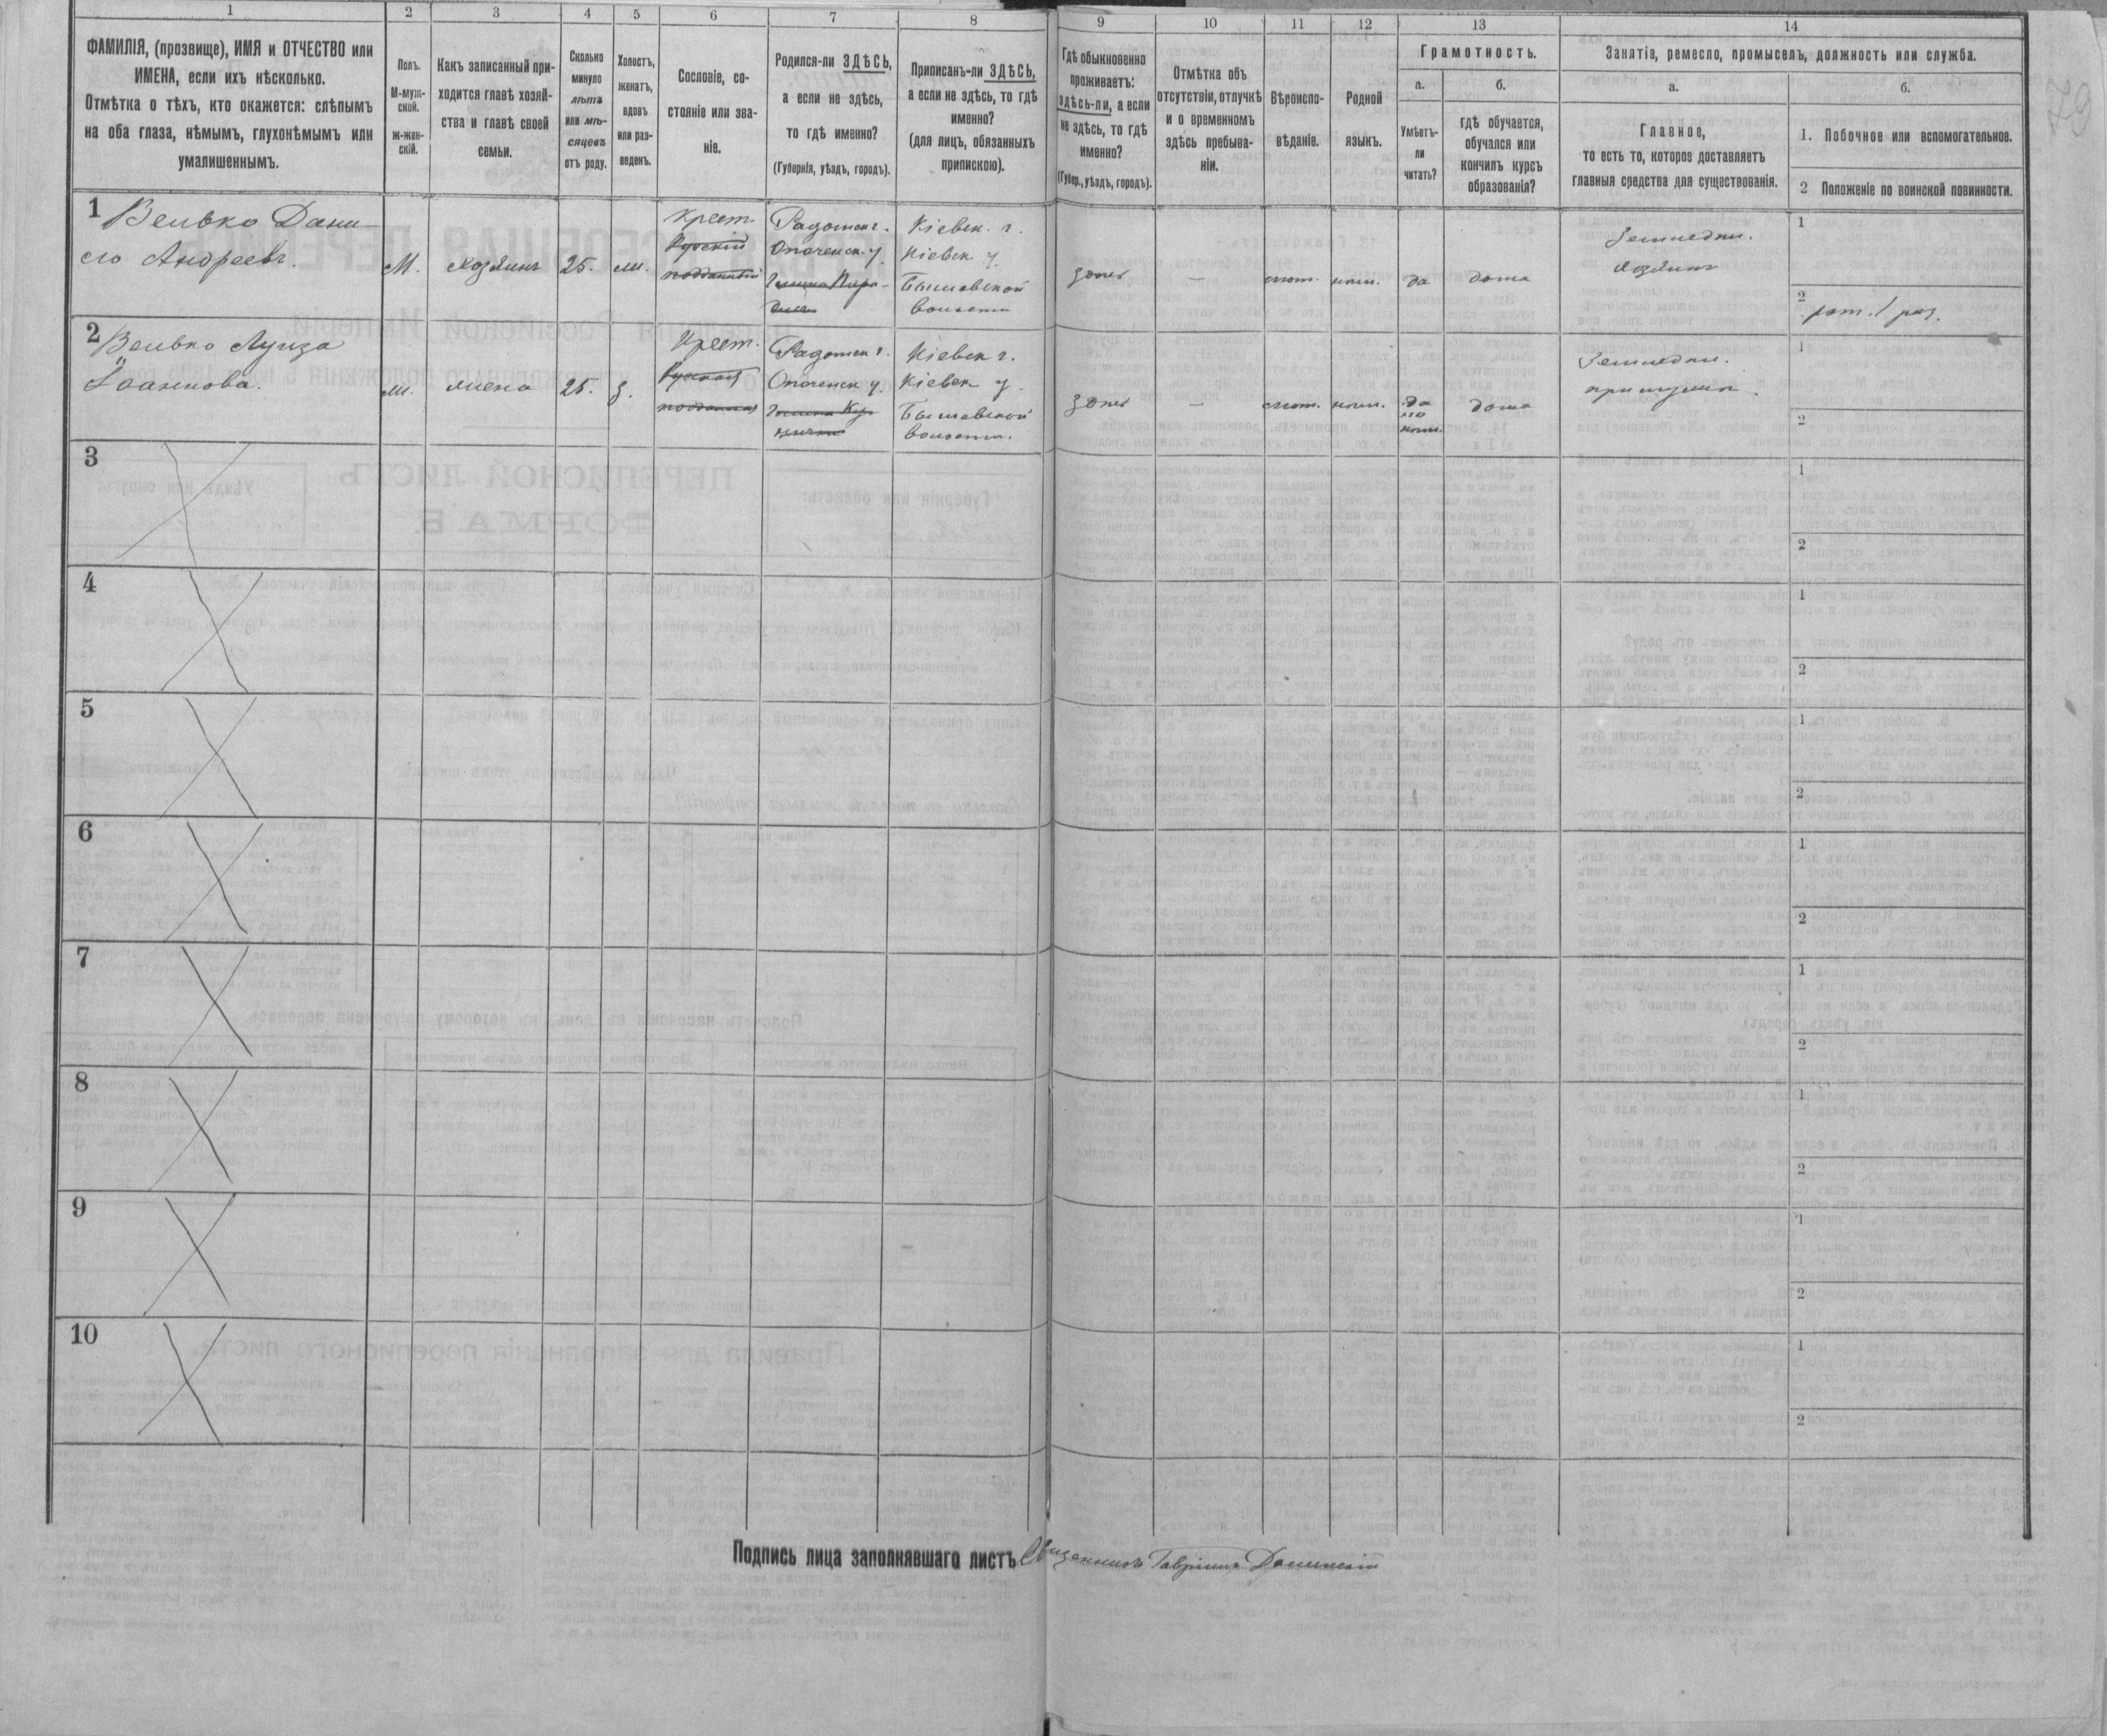 1 2 3 4 5 6 7 8 9 10 11 12 13 14
ФАМИЛІЯ, (прозвище), ИМЯ и ОТЧЕСТВО или
ИМЕНА, если ихъ нѣсколько.
Отмѣтка о тѣхъ, кто окажется: слѣпымъ
на оба глаза, нѣмымъ, глухонѣмымъ или
умалишеннымъ.
Полъ.
М-муж-
ской.
ж-жен-
скій.
Какъ записанный при-
ходится главѣ хозяй-
ства и главѣ своей
семьи.
Сколько
минуло
лѣтъ
или мѣ-
сяцевъ
отъ роду.
Холостъ,
женатъ,
вдовъ
или раз-
веденъ.
Сословіе, со-
стояніе или зва-
ніе.
Родился-ли ЗДѢСЬ,
а если не здѣсь,
то гдѣ именно?
(Губернія, уѣздъ, городъ).
Приписанъ-ли ЗДѢСЬ,
а если не здѣсь, то гдѣ
именно?
(для лицъ, обязанныхъ
припискою).
Гдѣ обыкновенно
проживаетъ:
здѣсь-ли, а если
не здѣсь, то гдѣ
именно?
(Губер., уѣздъ, городъ).
Отмѣтка объ
отсутствіи, отлучкѣ
и о временномъ
здѣсь пребыва-
ніи.
Вѣроиспо-
вѣданіе.
Родной
языкъ.
Грамотность.
а.
Умѣетъ-
ли
читать?
б.
гдѣ обучается,
обучался или
кончилъ курсъ
образованія?
Занятія, ремесло, промыселъ, должность или служба.
а.
Главное,
то есть то, которое доставляетъ
главныя средства для существованія.
б.
1. Побочное или вспомогательное.
2 Положеніе по воинской повинности.
79
1 Велько Дани-
ло Андреевъ.
М.
хозяинъ
25.
Крест.
Русскій
подданный
Радомск г.
Опоченск у.
Кіевск. г.
Кіевск у.
Бышевской
волости
здѣсь
—
да
дома
Земледѣл.
хозяинъ
1
2
2 Велько Луиза
Іоаннова.
жена
25.
з.
Крест.
Русская
подданная
Радомск г.
Опоченск у.
Кіевск г.
Кіевск у.
Бышевской
волости.
здѣсь
—
да
дома
Земледѣл.
при мужѣ
1
2
3
1
2
4
1
2
5
1
2
6
1
2
7
1
2
8
1
2
9
1
2
10
1
2
Подпись лица заполнявшаго листъ Священникъ Гавріилъ